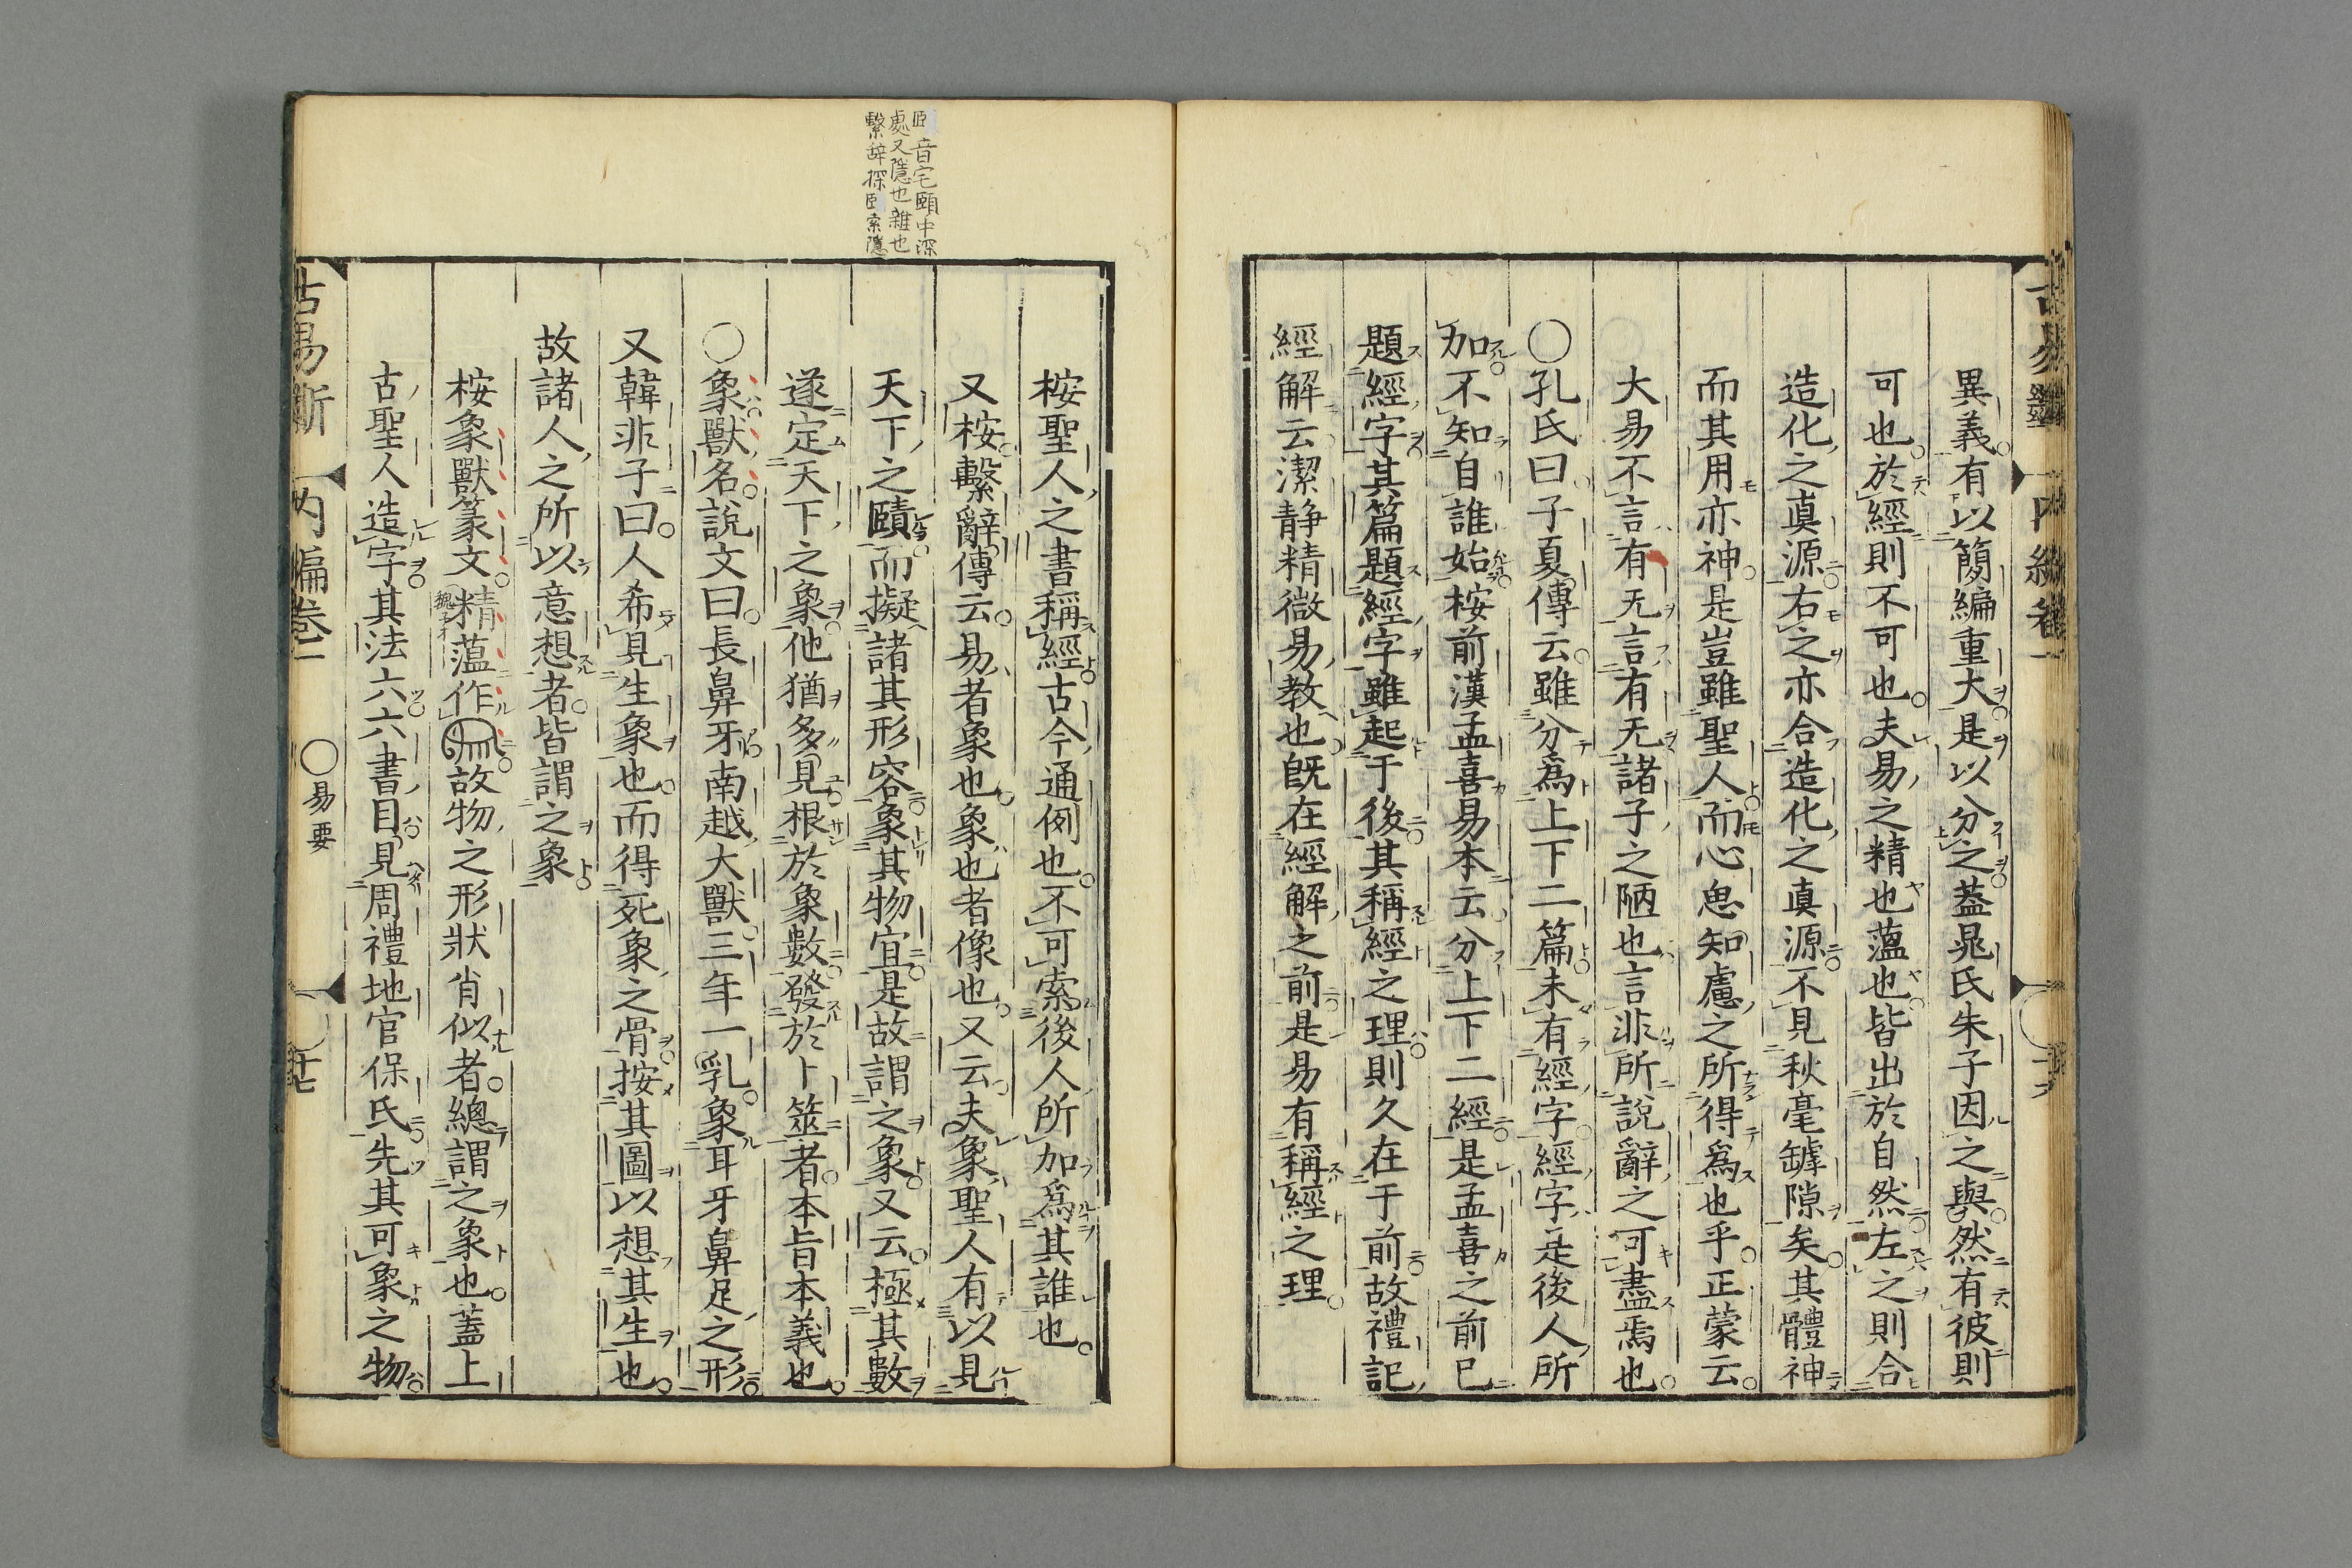 異義有以簡編重大是以分之蓋晁氏朱子因之與然有彼則
可也於經則不可也夫易之精也薀也皆出於自然左之則合
造化之眞源右之亦合造化之眞源不見秋毫罅隙矣其體神
而其用亦神是豈雖聖人而心思知慮之所得爲也乎正蒙云
大易不言有无言有无諸子之陋也言非所說辭之可盡焉也
○孔氏曰子夏傳云雖分爲上下二篇未有經字經字是後人所
加不知自誰始桉前漢孟喜易本云分上下二經是孟喜之前已
題經字其篇題經字雖起于後其稱經之理則久在于前故禮記
經解云潔静精微易教也既在經解之前是易有稱經之理
桉聖人之書稱經古今通例也不可索後人所加爲其誰也
又桉繫辭傳云易者象也象也者像也又云夫象聖人有以見
天下之賾而擬諸其形容象其物宜是故謂之象又云極其數
遂定天下之象他猶多見根於象數發於卜筮者本旨本義也
○象獸名說文曰長鼻牙南越大獸三年一乳象耳牙鼻足之形
又韓非子曰人希見生象也而得死象之骨按其圖以想其生也
故諸人之所以意想者皆謂之象
桉象獸篆文精薀作故物之形狀肖似者總謂之象也蓋上
古聖人造字其法六六書目見周禮地官保氏先其可象之物
古易斷 内編卷一 ○易要 十七
音宅頤中深
處又隱也雜也
繫辞探索隱